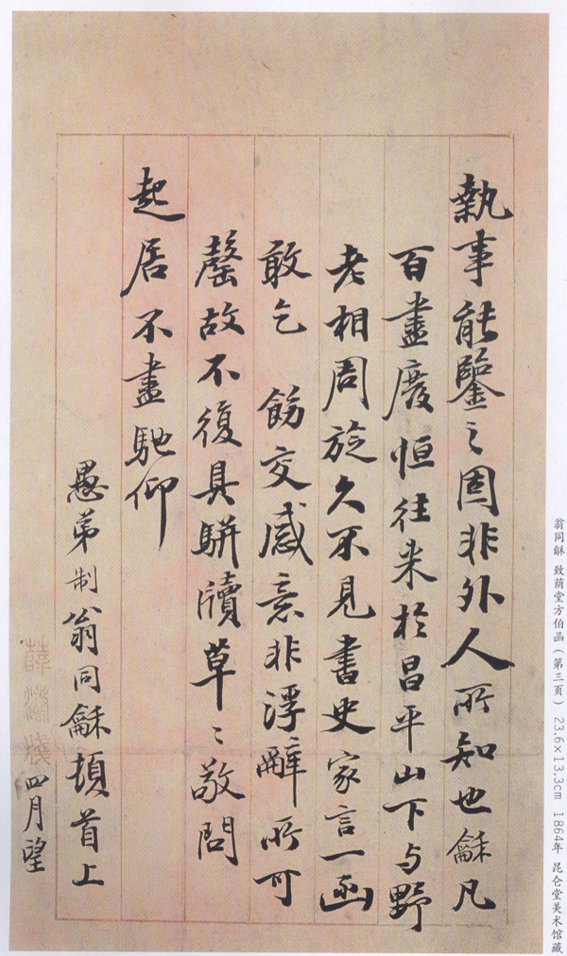 執事能鑒之固非外人所知也龢凡
百盡廢恒往来於昌平山下与野
老相周旋久不見書史家言一函
敢乞　飭交感意非浮辭所可
罄故不復具駢牘草〻敬問
起居不盡馳仰
愚弟制翁同龢頓首上
四月望
翁同龢 致荫堂方伯函（第三页） 23.6×13.3cm 1864年 昆仑堂美术馆藏